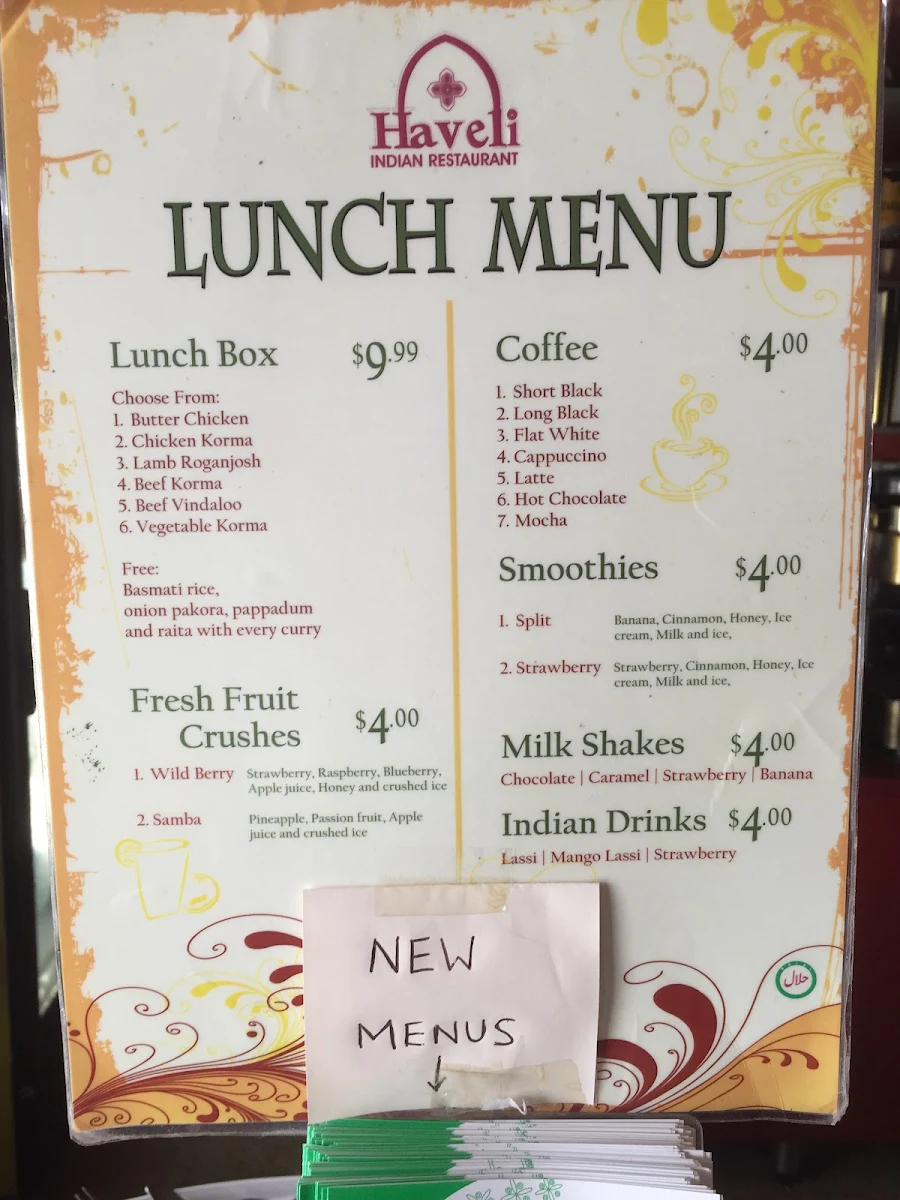 Haveli
INDIAN RESTAURANT
LUNCH MENU
Lunch Box $9.99
Choose From:
1. Butter Chicken
2. Chicken Korma
3. Lamb Roganjosh
4. Beef Korma
5. Beef Vindaloo
6. Vegetable Korma
Free:
Basmati rice,
onion pakora, pappadum
and raita with every curry
Fresh Fruit
Crushes $4.00
1. Wild Berry Strawberry, Raspberry, Blueberry,
Apple juice, Honey and crushed ice
2. Samba Pineapple, Passion fruit, Apple
juice and crushed ice
Coffee $4.00
1. Short Black
2. Long Black
3. Flat White
4. Cappuccino
5. Latte
6. Hot Chocolate
7. Mocha
Smoothies $4.00
1. Split Banana, Cinnamon, Honey, Ice
cream, Milk and ice,
2. Strawberry Strawberry, Cinnamon, Honey, Ice
cream, Milk and ice,
Milk Shakes $4.00
Chocolate | Caramel | Strawberry | Banana
Indian Drinks $4.00
Lassi | Mango Lassi | Strawberry
حلال
NEW
MENUS